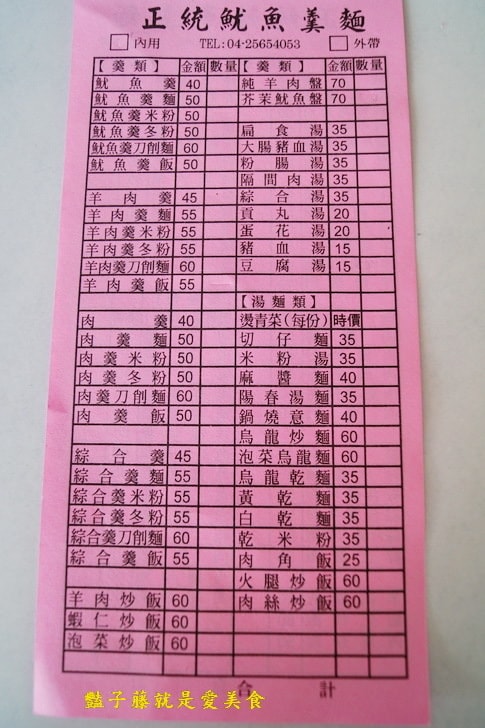 正統魷魚羹麵
內用 TEL:04-25654053 外帶
【羹類】 金額 數量 【羹類】 金額 數量
魷魚羹 40 純羊肉盤 70
魷魚羹麵 50 芥茉魷魚盤 70
魷魚羹米粉 50
魷魚羹冬粉 50 扁食湯 35
魷魚羹刀削麵 60 大腸豬血湯 35
魷魚羹飯 50 粉腸湯 35
隔間肉湯 35
羊肉羹 45 綜合湯 35
羊肉羹麵 55 貢丸湯 20
羊肉羹米粉 55 蛋花湯 20
羊肉羹冬粉 55 豬血湯 15
羊肉羹刀削麵 60 豆腐湯 15
羊肉羹飯 55
【湯麵類】
肉羹 40 燙青菜(每份) 時價
肉羹麵 50 切仔麵 35
肉羹米粉 50 米粉湯 35
肉羹冬粉 50 麻醬麵 40
肉羹刀削麵 60 陽春湯麵 35
肉羹飯 50 鍋燒意麵 40
烏龍炒麵 60
綜合羹 45 泡菜烏龍麵 60
綜合羹麵 55 烏龍乾麵 35
綜合羹米粉 55 黃乾麵 35
綜合羹冬粉 55 白乾麵 35
綜合羹刀削麵 60 乾米粉 35
綜合羹飯 55 肉角飯 25
火腿炒飯 60
羊肉炒飯 60 肉絲炒飯 60
蝦仁炒飯 60
泡菜炒飯 60
合計
豔子藤就是愛美食